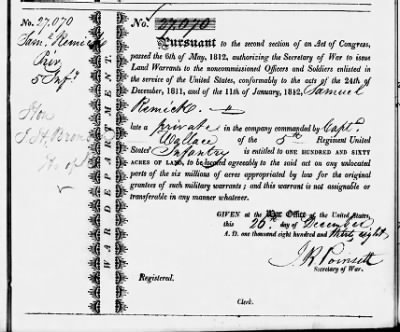 No. 27,070
Saml. Remick
Priv.
5 Inf.
Hon
WAR DEPARTMENT.
No. 27,070
Pursuant to the second section of an Act of Congress,
passed the 6th of May, 1812, authorizing the Secretary of War to issue
Land Warrants to the noncommissioned Officers and Soldiers enlisted in
the service of the United States, conformably to the acts of the 24th of
December, 1811, and of the 11th of January, 1812, Samuel
Remick.
late a private in the company commanded by Capt.
Wallace of the 5th Regiment United
States' Infantry is entitled to ONE HUNDRED AND SIXTY
ACRES OF LAND, to be located agreeably to the said act on any unlocated
parts of the six millions of acres appropriated by law for the original
grantees of such military warrants; and this warrant is not assignable or
transferable in any manner whatever.
GIVEN at the War Office of the United States,
this 26th day of December
A. D. one thousand eight hundred and thirty eight,
J. R. Poinsett
Secretary of War.
Registered.
Clerk.